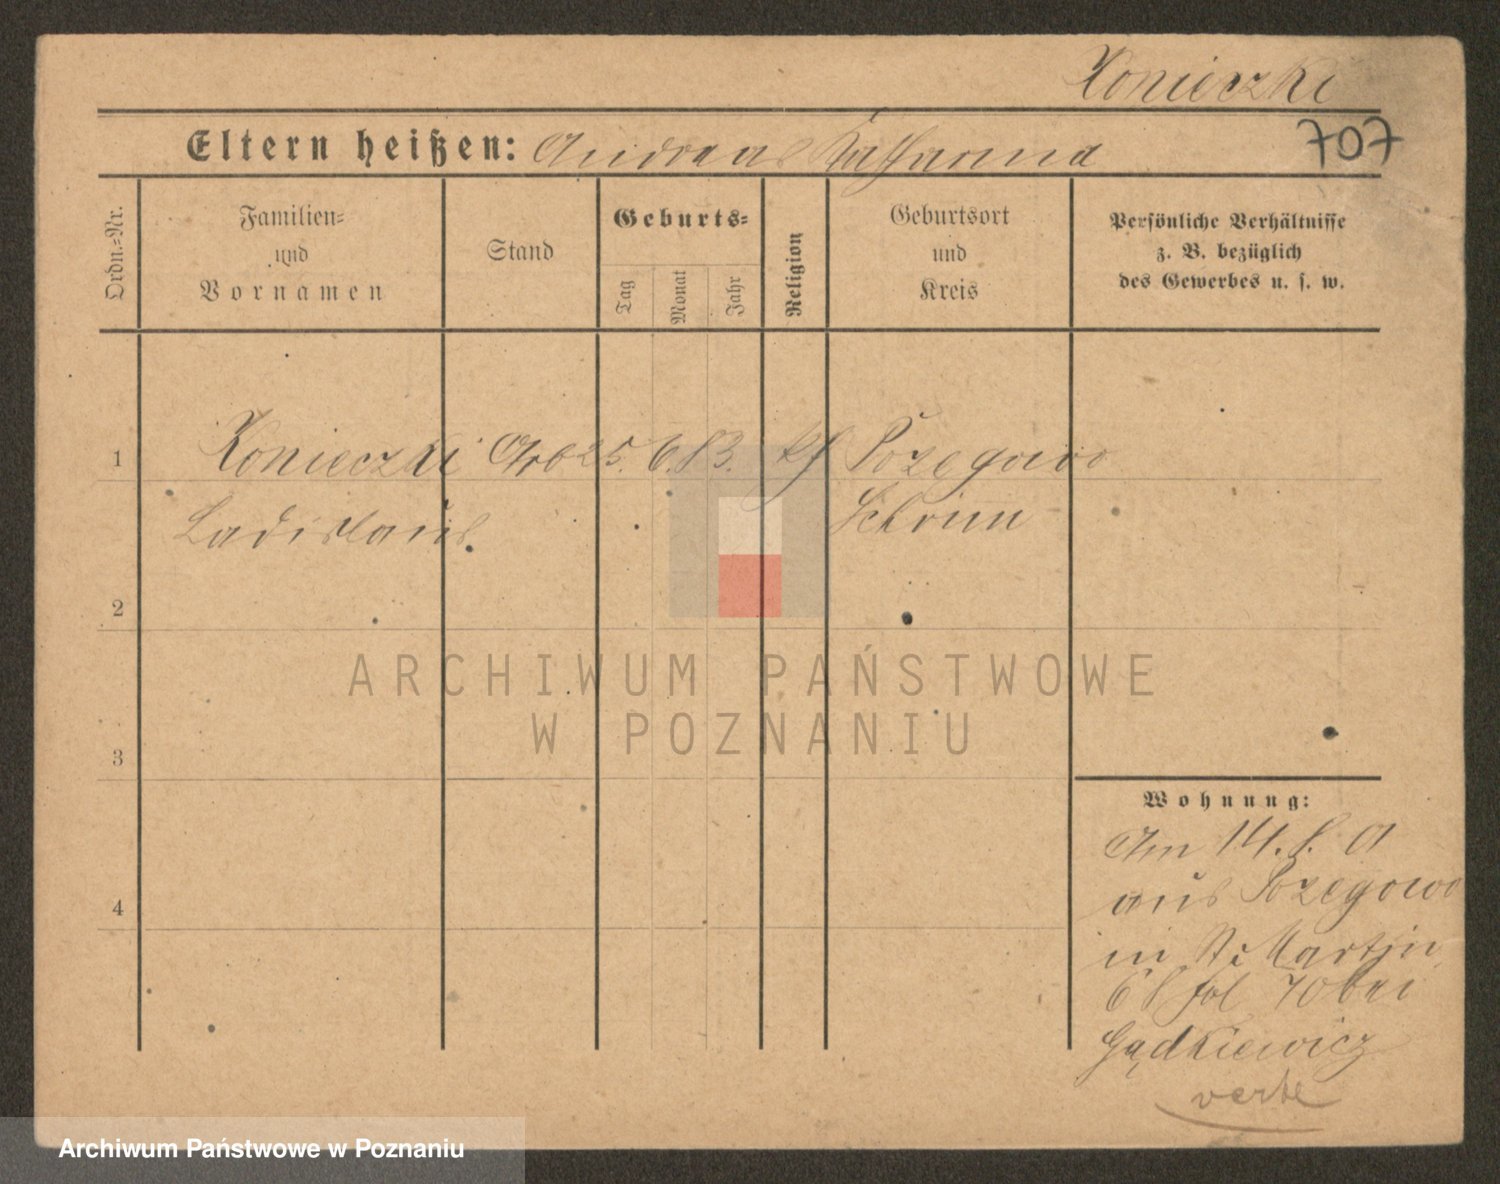 Konieczki
Eltern heißen: Andreas Katharina
707
Ordn.-Nr.
Familien-
und
Vornamen
Stand
Geburts-
Tag
Monat
Jahr
Religion
Geburtsort
und
Kreis
Persönliche Verhältnisse
z. B. bezüglich
des Gewerbes u. s. w.
1 Konieczki Arb 25. 6. 83. kth Pozegowo
Ladislaus. Schrimm
2
3
4
ARCHIWUM PAŃSTWOWE
W POZNANIU
Wohnung:
Am 14. 8. 01
aus Pozegowo
in St. Martin
68 fol 70 bei
Gądkiewicz
verte
Archiwum Państwowe w Poznaniu